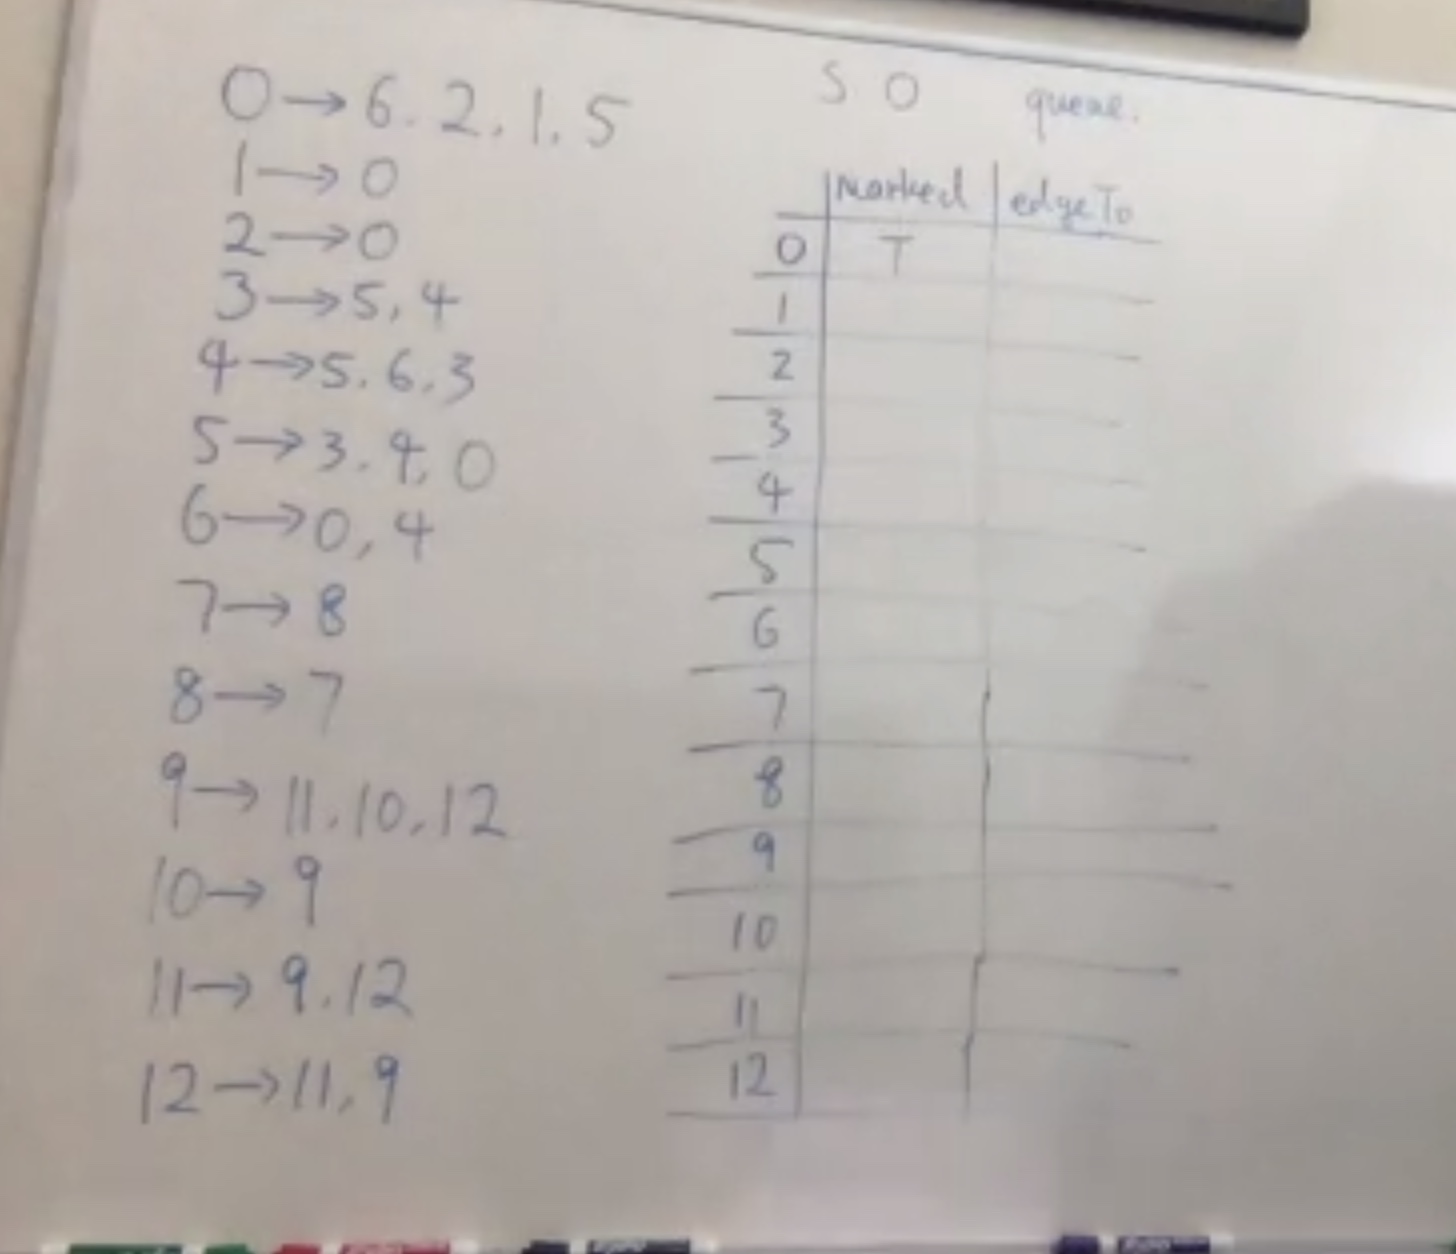 0→6.2.1.5
1→0
2→0
3→5,4
4→5.6.3
5→3.4.0
6→0,4
7→8
8→7
9→11.10.12
10→9
11→9.12
12→11,9
S 0 queue.
marked edgeTo
0 T
1
2
3
4
5
6
7
8
9
10
11
12